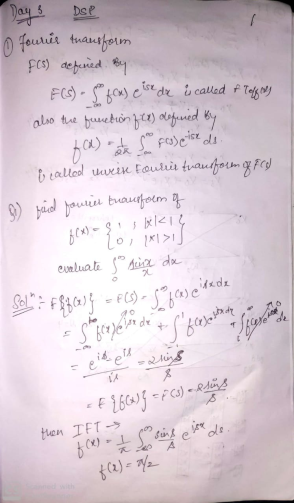 Day 3 DSP
1
① Fourier transform
F(s) defined by
F(s) = ∫_{-∞}^{∞} f(x) e^{isx} dx is called F T of f(x)
also the function f(x) defined by
f(x) = 1/2π ∫_{-∞}^{∞} F(s) e^{-isx} ds
is called inverse Fourier transform of F(s)
Q) find fourier transform of
f(x) = { 1, |x|<1
0, |x|>1 }
evaluate ∫_0^∞ sinx/x dx
Solⁿ :- F{f(x)} = F(s) = ∫_{-∞}^{∞} f(x) e^{isx} dx
= ∫ f(x) e^{isx} dx + ∫^{1} f(x) e^{isx} dx + ∫_{1}^{∞} f(x) e^{isx} dx
= e^{is} e^{is} / is = 2 sin s / s
= F{f(x)} = F(s) = 2 sin s / s .
then IFT →
f(x) = 1/π ∫_{-∞}^{∞} sin s / s e^{isx} ds.
f(x) = π/2